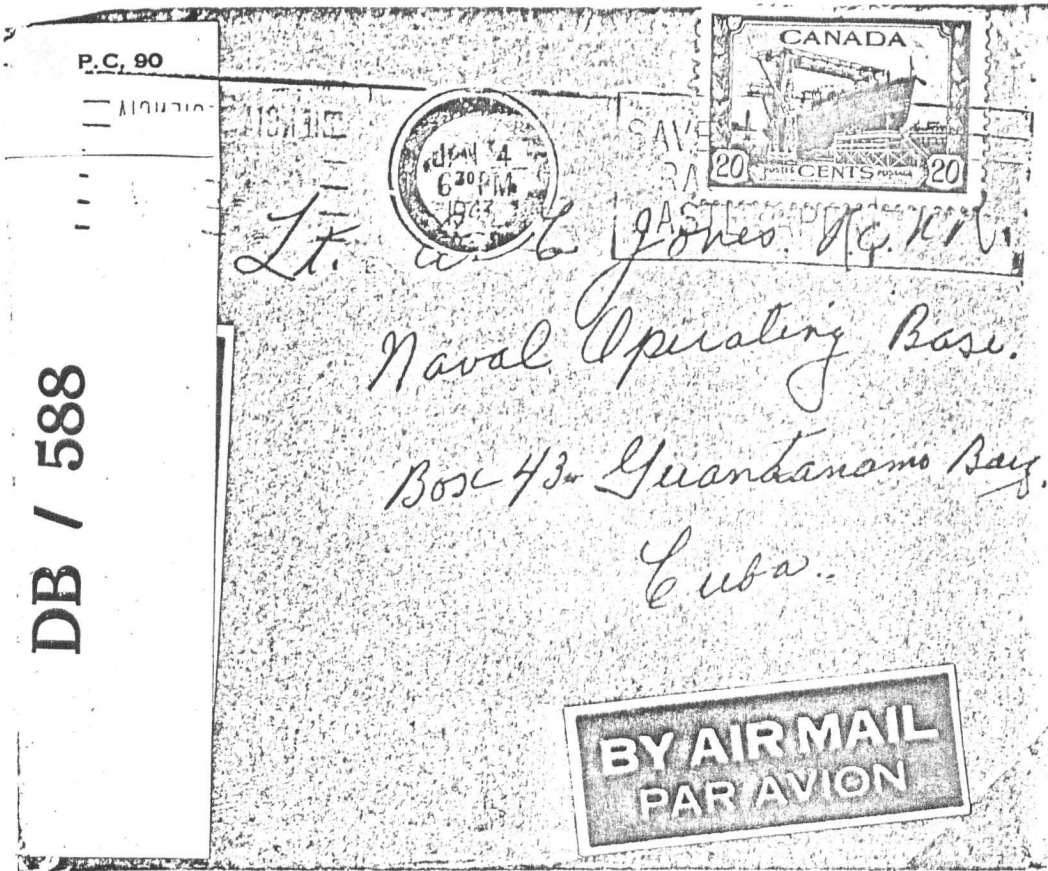 P.C. 90
CANADA
20 POSTES CENTS POSTAGE 20
JAN 4
6 30 PM
1943
SAVE
Lt. W. C. Jones. R.C.N.
Naval Operating Base.
Box 43 Guantanamo Bay.
Cuba.
DB / 588
BY AIR MAIL
PAR AVION